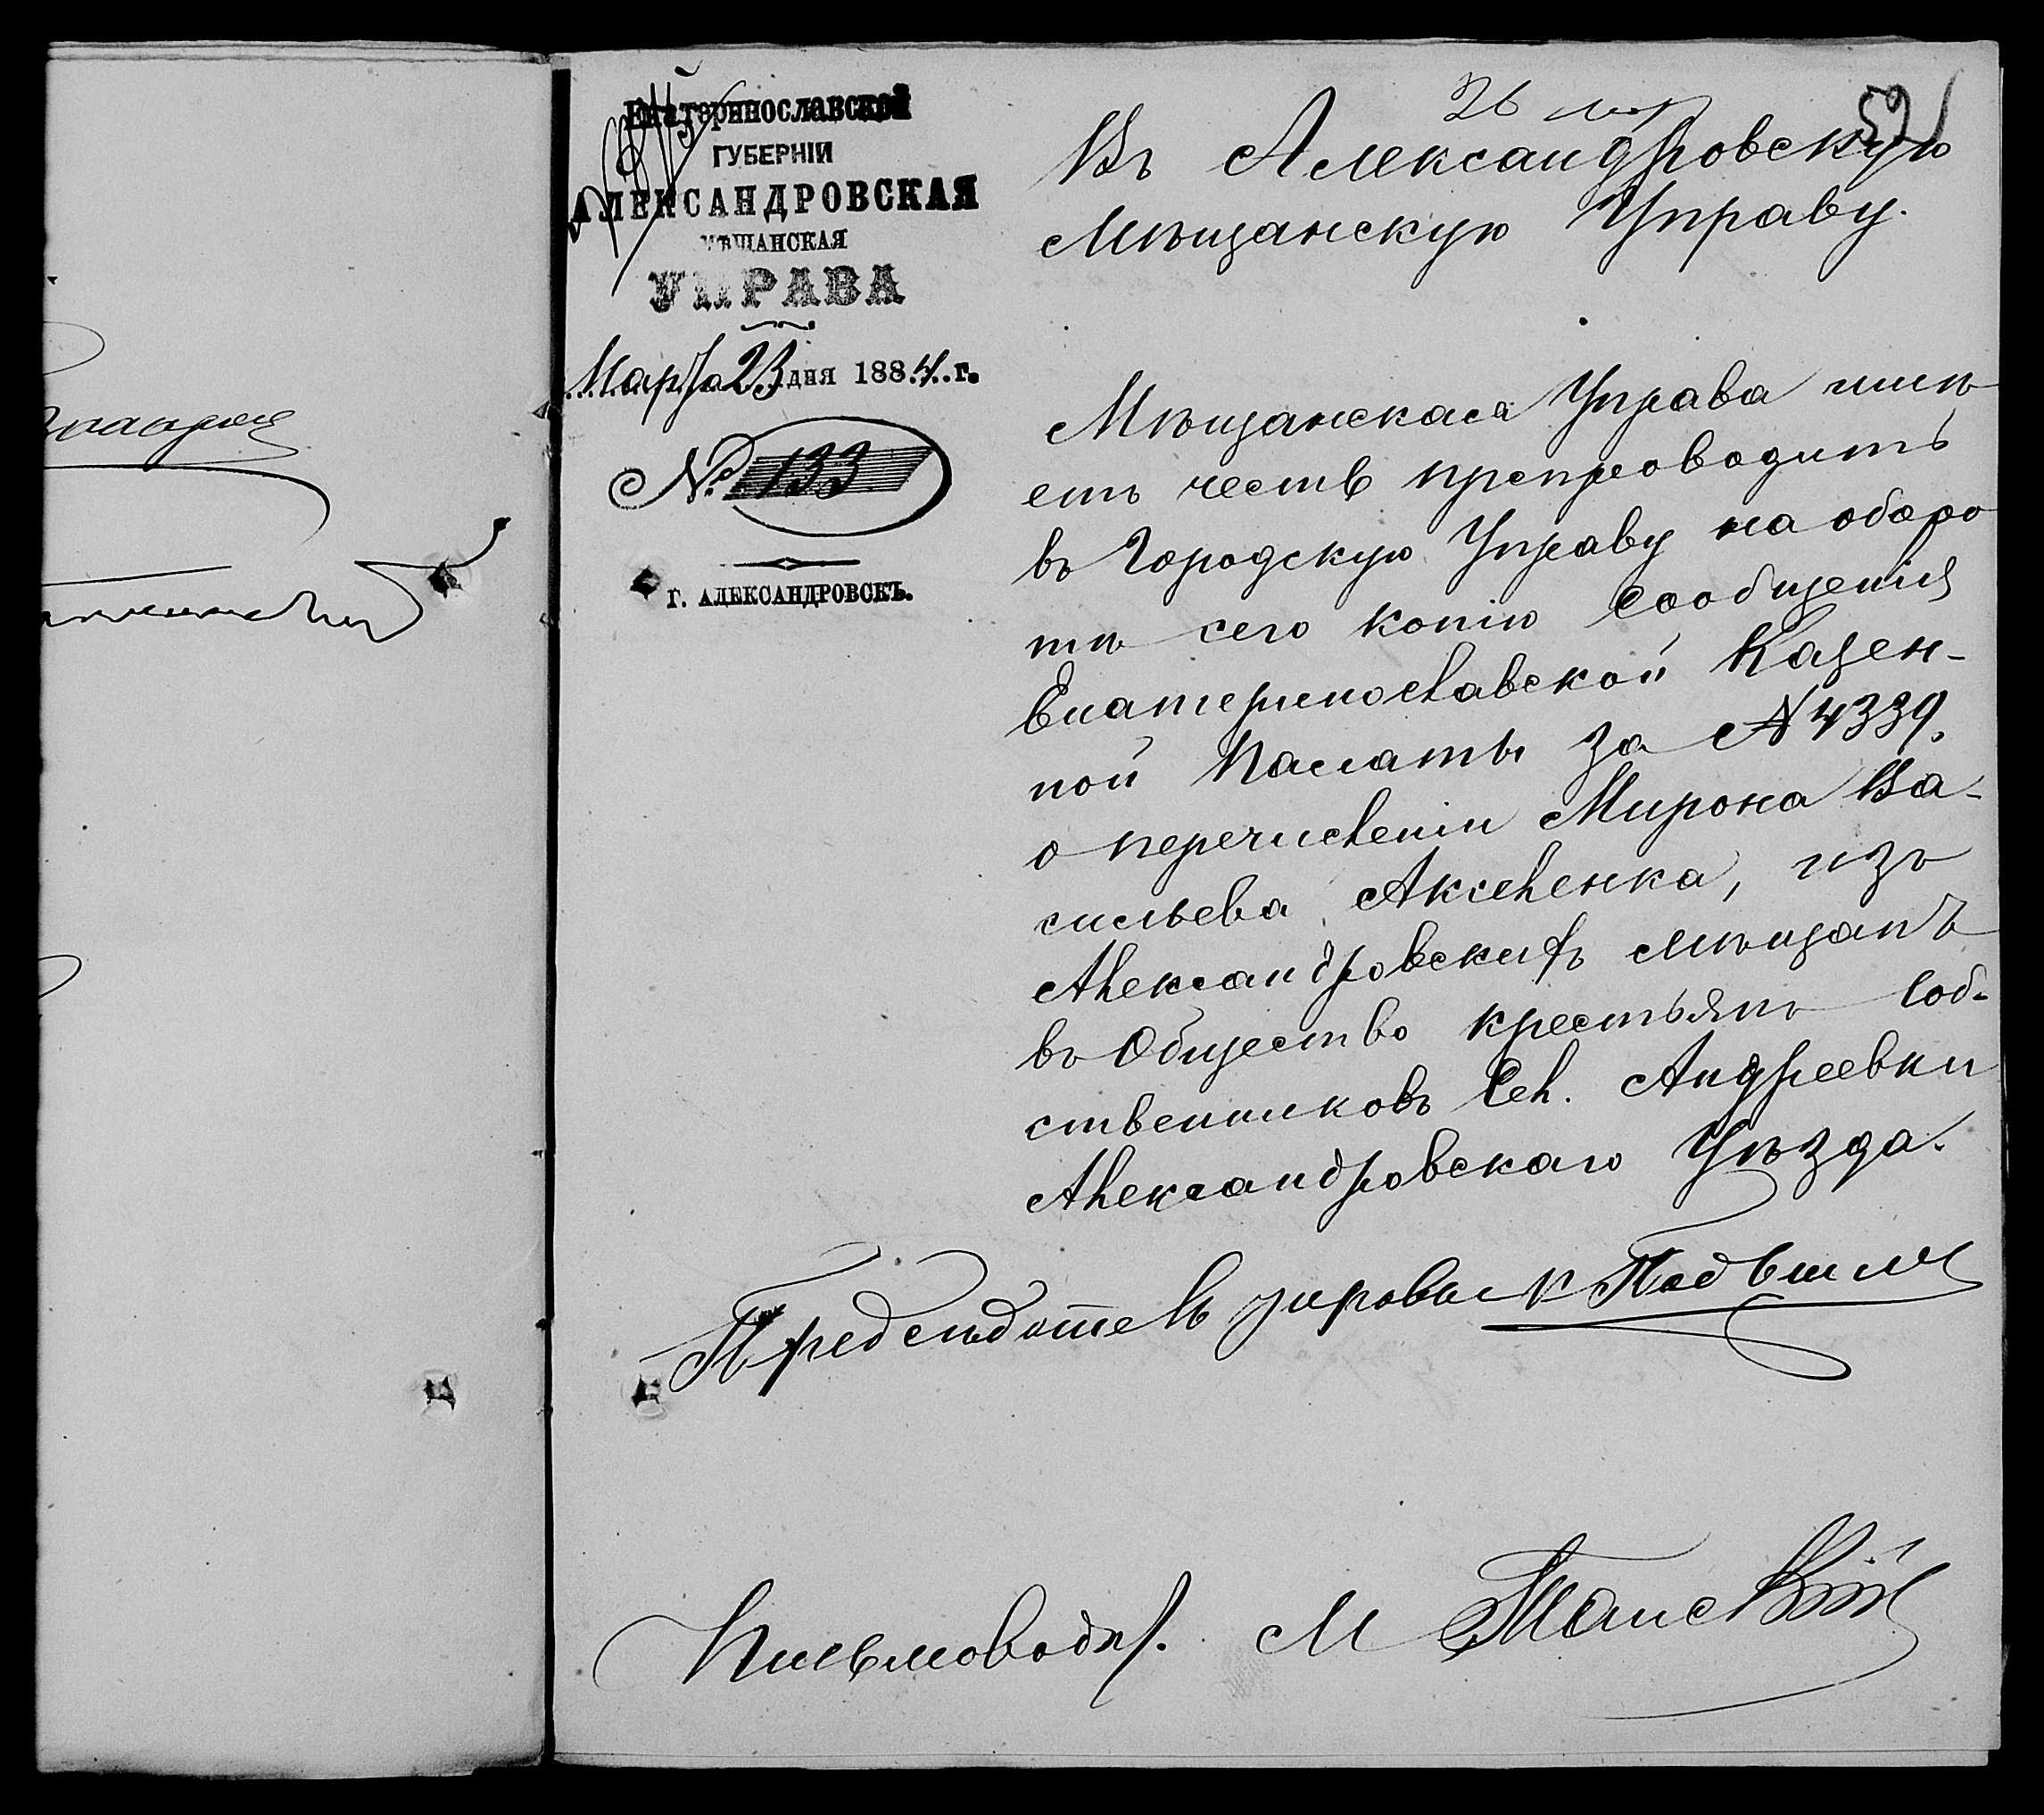 Екатеринославской
ГУБЕРНІИ
АЛЕКСАНДРОВСКАЯ
МѢЩАНСКАЯ
УПРАВА
Марта 23 дня 1884 г.
№ 133
Г. АЛЕКСАНДРОВСКЪ.
26 мар
52
Въ Александровскую
Мѣщанскую Управу.
Мѣщанская Управа имѣ
етъ честь препроводить
въ Городскую Управу на оборо
тѣ сего копію Сообщенія
Екатеринославской Казен-
ной Палаты за № 4339.
о перечисленіи Мирона Ва-
сильева Акселенка, изъ
Александровскихъ мѣщанъ
въ Общество крестьянъ Соб-
ственниковъ Сел. Андреевки
Александровскаго Уѣзда.
Предсѣдатель управы
Письмовод. М